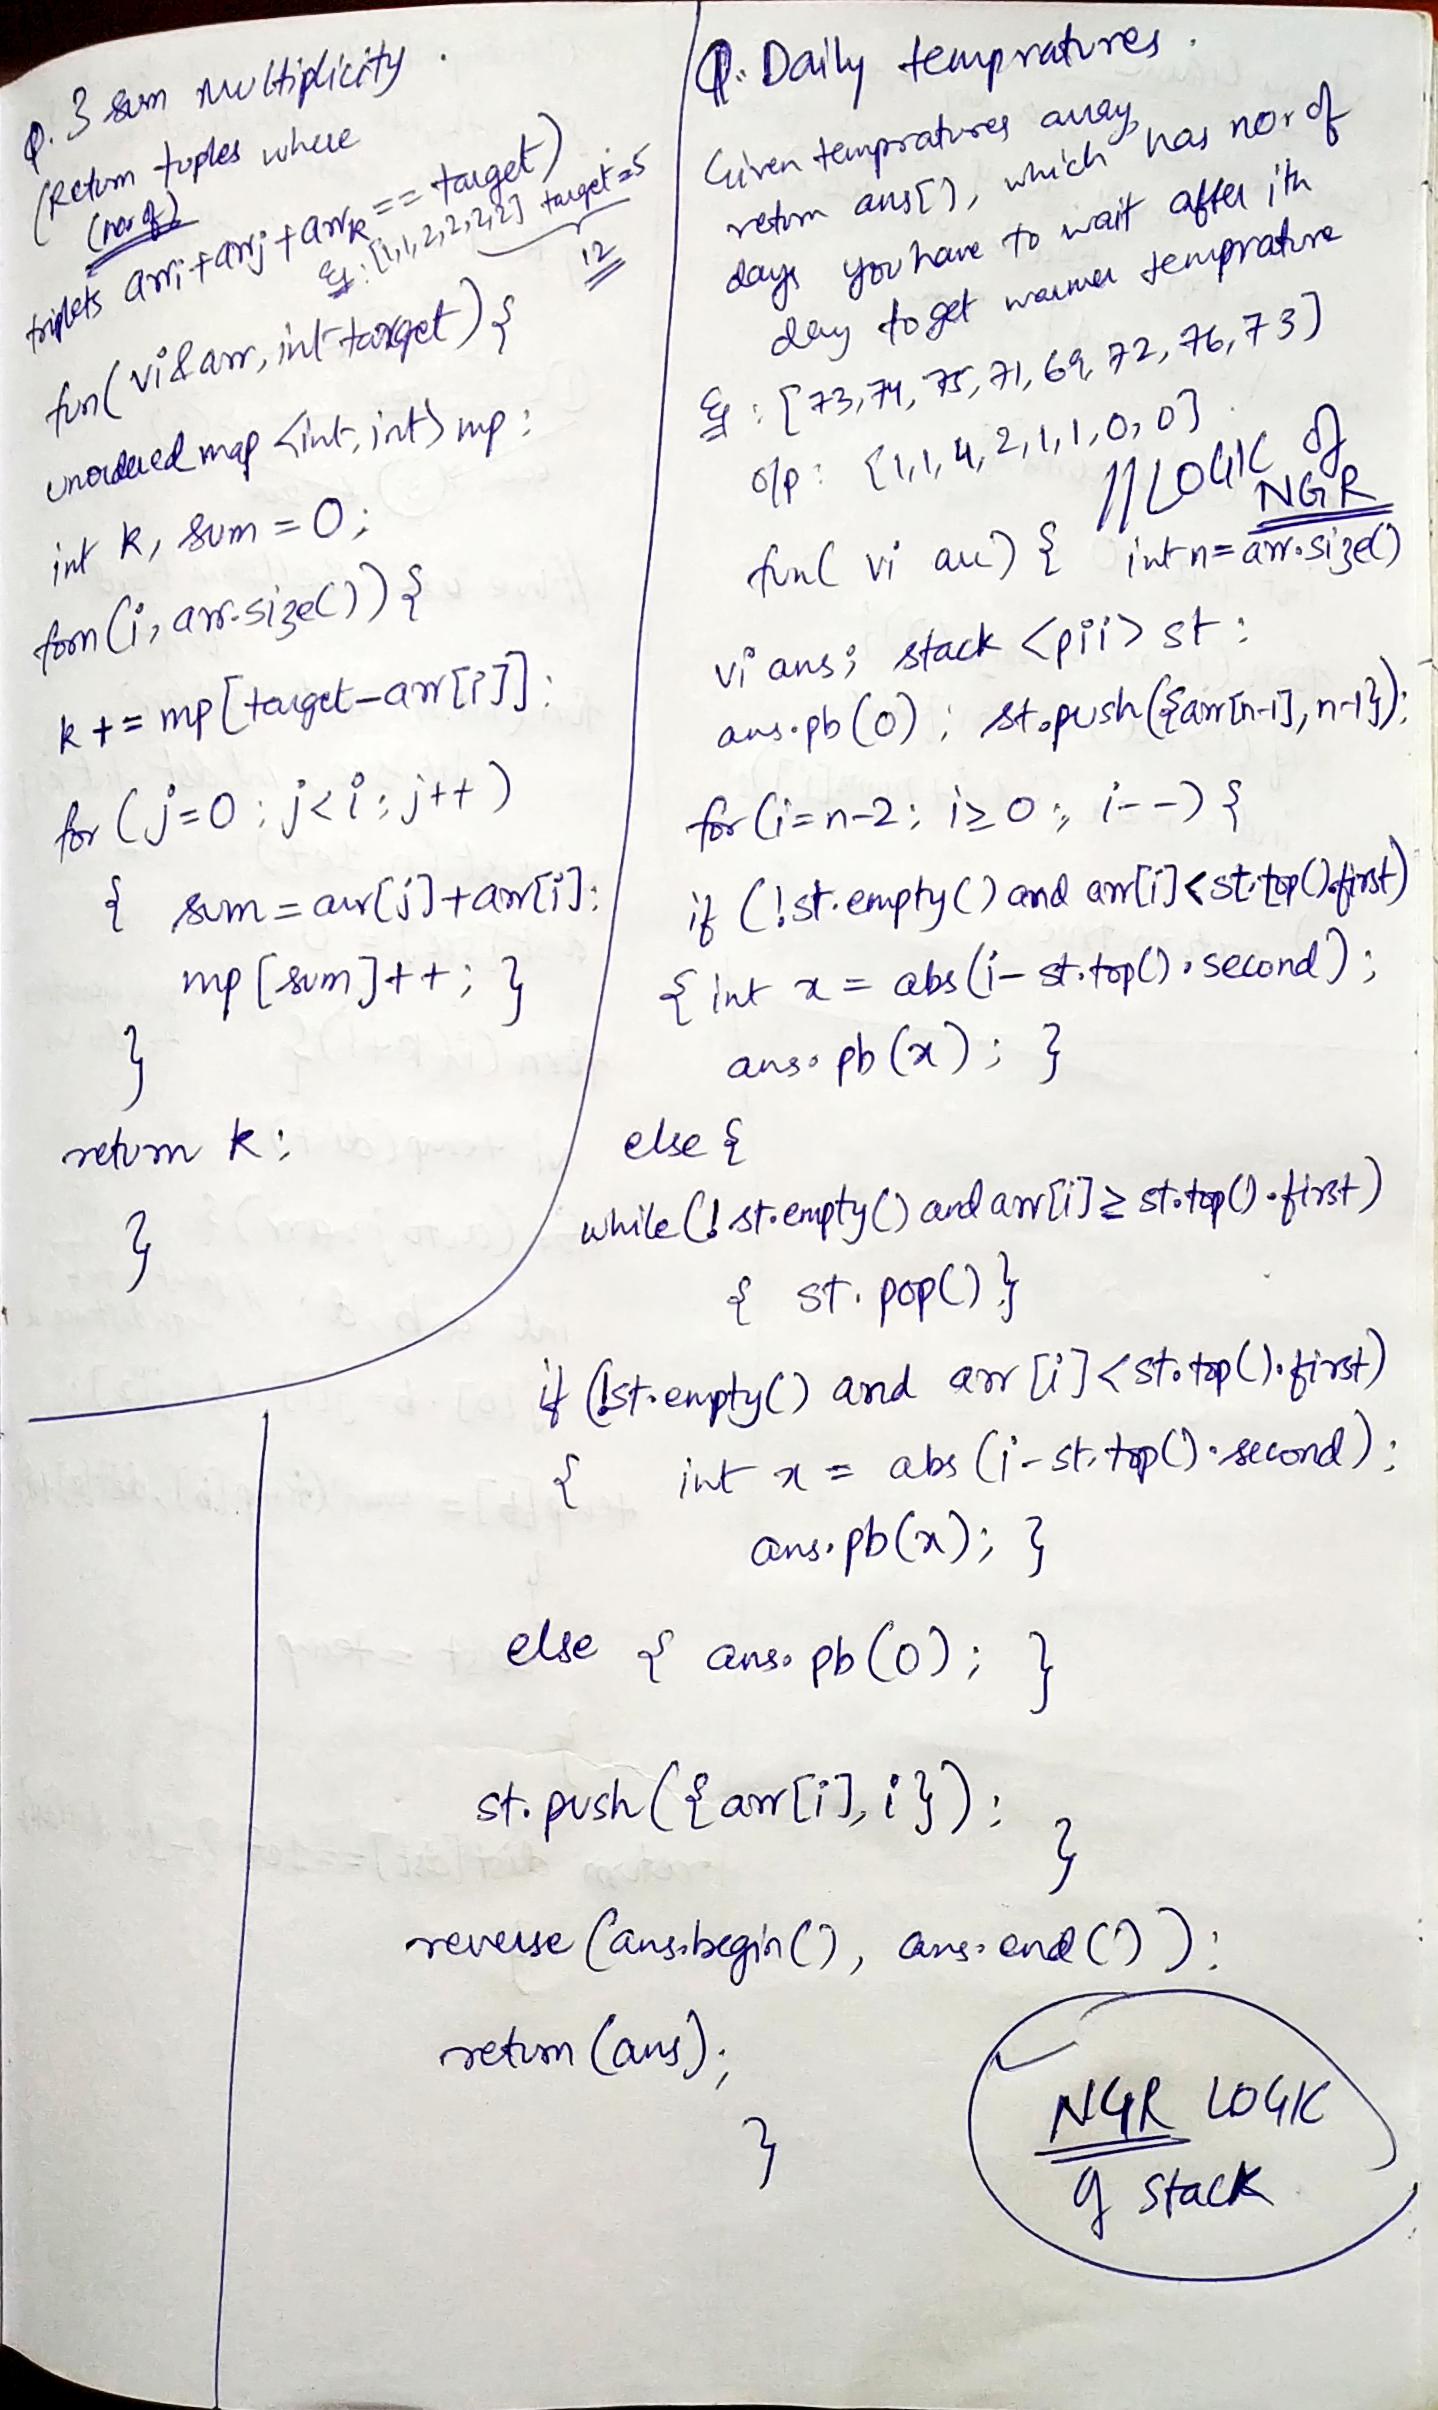 Q. 3 sum multiplicity.
(Return tuples where
(no. of)
triplets arri + arrj + arrk == target)
Eg: [1,1,2,2,2,2] target=5
12
fun(vi&arr, int target) {
unordered map <int, int> mp;
int k, sum = 0;
forn(i, arr.size()) {
k += mp[target-arr[i]];
for (j=0; j<i; j++)
{ sum = arr[j]+arr[i];
mp[sum]++; }
}
return k;
}
Q. Daily tempratures.
Given tempratures array,
return ans[], which has no. of
days you have to wait after ith
day to get warmer temprature
Eg: [73,74,75,71,69,72,76,73]
o/p: [1,1,4,2,1,1,0,0]
//LOGIC of
NGR
fun( vi arr) { int n=arr.size()
vi ans; stack <pii> st;
ans.pb(0); st.push({arr[n-1], n-1});
for(i=n-2; i≥0; i--) {
if (!st.empty() and arr[i]<st.top().first)
{ int x = abs(i-st.top().second);
ans.pb(x); }
else {
while(!st.empty() and arr[i]≥st.top().first)
{ st.pop() }
if (!st.empty() and arr[i]<st.top().first)
{ int x = abs(i-st.top().second);
ans.pb(x); }
else { ans.pb(0); }
st.push({arr[i], i});
}
reverse(ans.begin(), ans.end());
return(ans);
}
NGR LOGIC
of stack